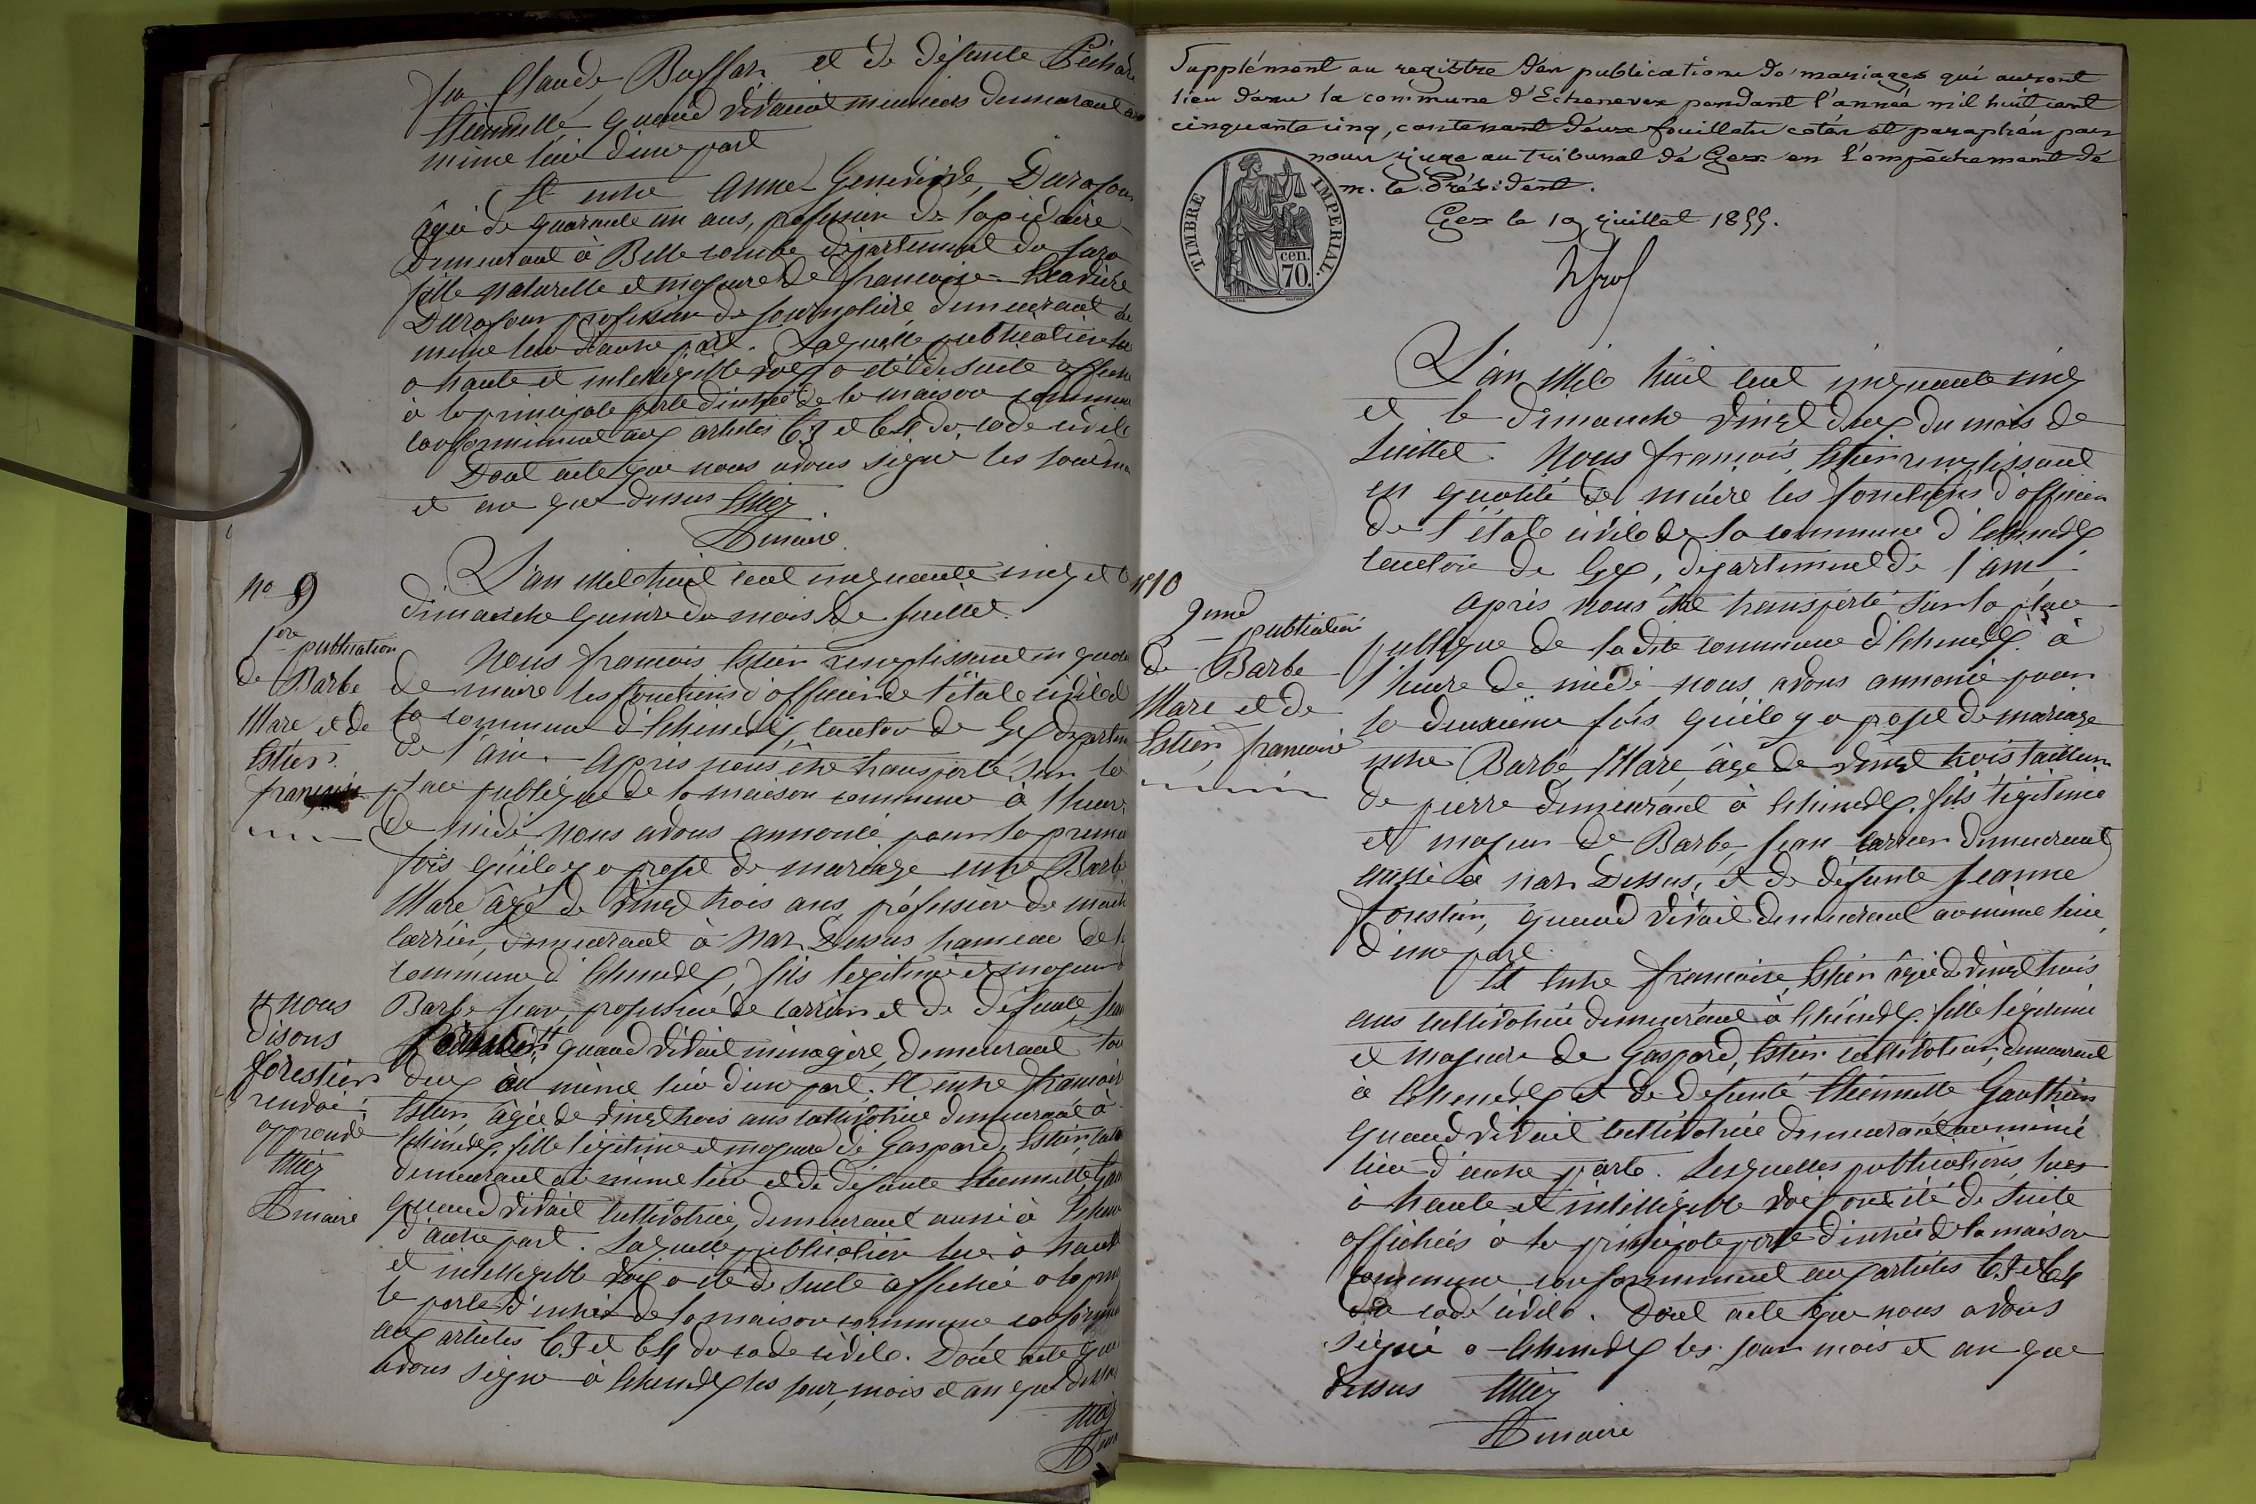 feu Claude Buffar et de défunte Péchard
Etiennette quand vivait meuniers demeurant au
même lieu d'une part
Et entre Anne Geneviève Durafour
âgée de quarante un ans, profession de lapidaire
demeurant à Belle combe département du Jura
fille naturelle et majeure de françoise
Durafour profession de journalière demeurant au
même lieu d'autre part. Laquelle publication lue
a haute et intelligible voix a été de suite affichée
à la principale porte d'entrée de la maison commune
conformément aux articles 63 et 64 du code civile
Dont acte que nous avons signé les jour mois
et an que dessus Estier
maire
No 9
1ere publication
de Barbe
Marc et de
Estier
françoise
L'an mil huit cent cinquante cinq et le
dimanche quinze du mois de Juillet.
Nous françois Estier remplissant en qualité
de maire les fonctions d'officier de l'état civile de
la commune d'Echenevex, canton de Gex départem
de l'ain. Après nous être transporté sur la
place publique de la maison commune à l'heure
de midi nous avons annoncé pour la première
fois qu'il y a projet de mariage entre Barbe
Marc âgé de vingt trois ans, profession de
carrier, demeurant à Naz Dessus hameau de la
commune d'Echenevex, fils légitime et majeur de
Barbe Jean, profession de carrier et de défunte Jean
quand vivait ménagère, demeurant tou
deux au même lieu d'une part. Et entre françoise
Estier, âgée de vingt trois ans cultivatrice demeurant à
Echenevex, fille légitime et majeure de Gaspard, Estier, cult
demeurant au même lieu et de défunte Etiennette Gau
quand vivait cultivatrice, demeurant aussi à Echene
d'autre part. Laquelle publication lue à haute
et intelligible voix a été de suite affichée a la prin
le porte d'entrée de la maison commune conformém
aux articles 63 et 64 du code civile. Dont acte que
avons signé à Echenevex les jour, mois et an que dessus
Estier
maire
# nous
disons
forestier
renvoi
approuvé
Estier
maire
Supplément au registre des publications de mariages qui auront
lieu dans la commune d'Echenevex pendant l'année mil huit cent
cinquante cinq, contenant deux feuillets cotés et paraphés par
nous juge au Tribunal de Gex en l'empêchement de
m. le Président.
Gex le 19 juillet 1855.
TIMBRE IMPERIAL.
cen.
70.
No 10
2eme publication
de Barbe
Marc et de
Estier, françoise
L'an Mil huit cent cinquante cinq
et le dimanche vingt deux du mois de
Juillet. Nous françois Estier remplissant
en qualité de maire les fonctions d'officier
de l'état civile de la commune d'Echenevex
canton de Gex, département de l'ain.
Après nous être transporté sur la place
publique de la dite commune d'Echenevex à
l'heure de midi nous avons annoncé pour
la deuxième fois qu'il y a projet de mariage
entre Barbe, Marc, âgé de vingt trois tailleur
de pierre demeurant à Echenevex, fils légitime
et majeur de Barbe, Jean carrier demeurant
aussi à Naz Dessus, et de défunte Jeanne
forestier, quand vivait demeurant au même lieu
d'une part
Et entre françoise, Estier âgée de vingt trois
ans cultivatrice demeurant à Echenevex, fille légitime
et majeure de Gaspard, Estier cultivateur, demeurant
à Echenevex et de défunte Etiennette Gauthier
quand vivait cultivatrice demeurant au même
lieu d'autre parte. Lesquelles publications lues
à haute et intelligible voix ont été de suite
affichées à la principale porte d'entrée de la maison
commune conformément aux articles 63 et 64
du code civile. Dont acte que nous avons
signé a Echenevex les jour mois et an que
dessus Estier
maire